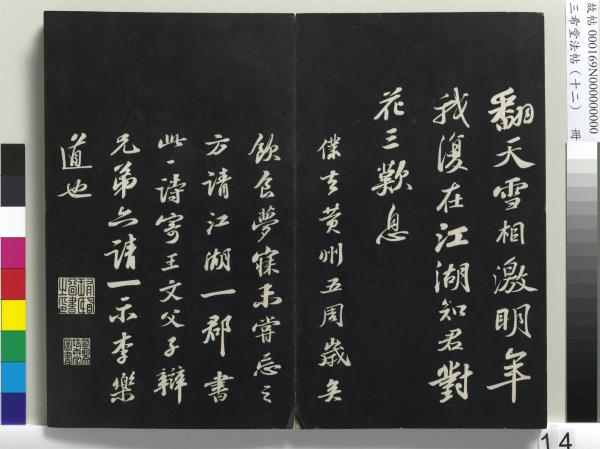 翻天雪相激明年
我復在江湖知君對
花三歎息
僕去黃州五周歲矣
飲食夢寐未嘗忘之
方請江湖一郡書
此一詩寄王文父子辯
兄弟亦請一示李樂
道也
故帖 000169N000000000
三希堂法帖（十二） 冊
14